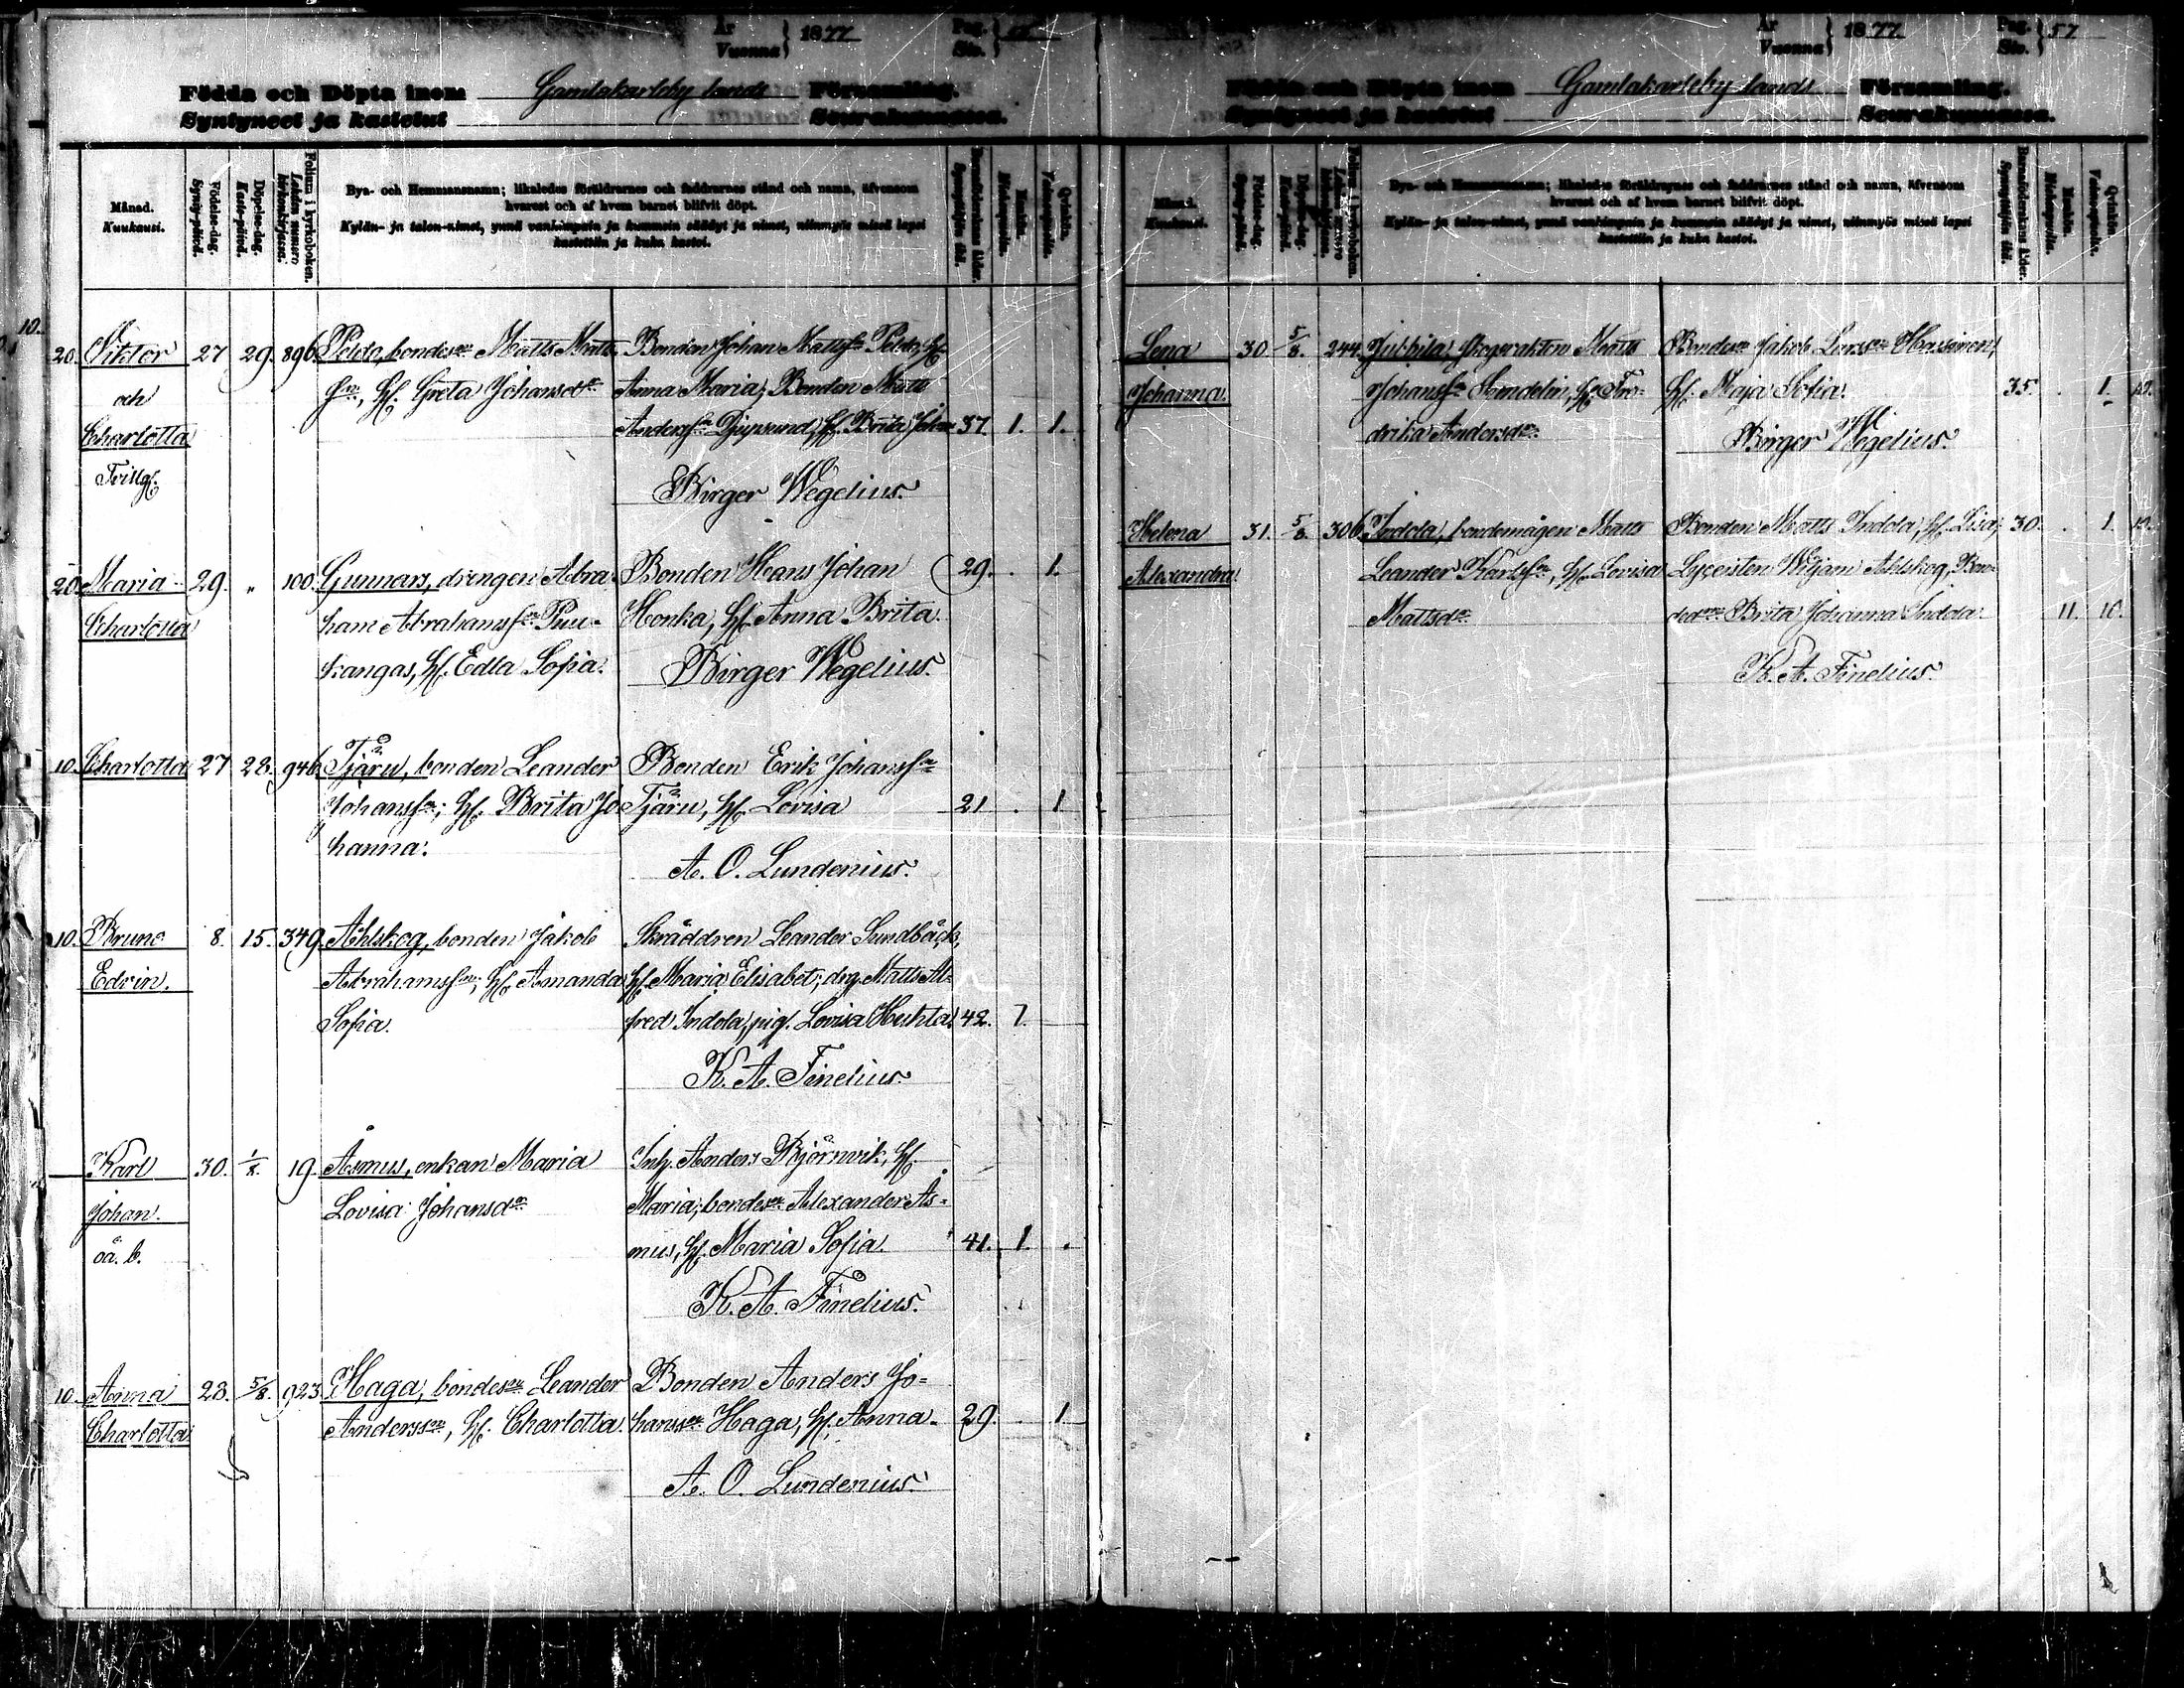 År
Vuonna } 1877 Pag.
Siv.
Födda och Döpta inom Gamlakarleby lands Församling.
Syntyneet ja kastetut Seurakunnassa.
Månad.
Kuukausi.
Födelse-dag.
Synty-päivä.
Döpelse-dag.
Kaste-päivä.
Folium i kyrkoboken.
Lehden numero kirkonkirjassa.
Bya- och Hemmansnamn; likaledes föräldrarnes och faddrarnes stånd och namn, äfvensom
hvarest och af hvem barnet blifvit döpt.
Kylän- ja talon-nimet, ynnä vanhimpain ja kummein säädyt ja nimet, niinmyös missä lapsi
kastettiin ja kuka kastoi.
Barnaföderskans ålder.
Synnyttäjän ikä.
Mankön.
Miehenpuolia.
Qvinkön.
Vaimonpuolia.
10.
20. Viktor 27 29. 896. Peldo, bondes. Matts Matts Bonden Johan Mattss. Peldo, H.
och sn, H. Greta Johansdr. Anna Maria; Bonden Matts
Charlotta Anderssn Djupsund, H. Brita Johan 37. 1. 1.
Tvillg. Birger Wegelius.
20. Maria 29. „ 100. Gunnars, drengen Abra Bonden Hans Johan 29. . 1.
Charlotta ham Abrahamssn Puu- Honka, H. Anna Brita.
kangas, H. Edla Sofia. Birger Wegelius.
10. Charlotta 27 28. 946. Tjäru, bonden Leander Bonden Erik Johanssn
Johanssn; H. Brita Jo Tjäru, H. Lovisa 21 . 1
hanna. A. O. Lundenius.
10. Bruno 8. 15. 349. Ahlskog, bonden Jakob Skräddren Leander Sundbäck,
Edvin. Abrahamssn; H. Amanda H. Maria Elisabet; drg. Matts Al-
Sofia. fred Indola, pig. Lovisa Huhta. 42. 1.
K. A. Finelius.
Karl 30. 1/8. 19. Asmus, enkan Maria Inh. Anders Björnvik, H.
Johan. Lovisa Johansdr. Maria; bondes. Alexander As-
oä. b. mus, H. Maria Sofia. 41. 1. .
K. A. Finelius.
10. Anna 28. 5/8. 923 Haga, bondesn Leander Bonden Anders Jo-
Charlotta Anderssn, H. Charlotta. hanssn Haga, H. Anna. 29. . 1
A. O. Lundenius.
År
Vuonna } 1877 Pag.
Siv. } 57
Födda och Döpta inom Gamlakarleby lands Församling.
Syntyneet ja kastetut Seurakunnassa.
Månad.
Kuukausi.
Födelse-dag.
Synty-päivä.
Döpelse-dag.
Kaste-päivä.
Folium i kyrkoboken.
Lehden numero kirkonkirjassa.
Bya- och Hemmansnamn; likaledes föräldrarnes och faddrarnes stånd och namn, äfvensom
hvarest och af hvem barnet blifvit döpt.
Kylän- ja talon-nimet, ynnä vanhimpain ja kummein säädyt ja nimet, niinmyös missä lapsi
kastettiin ja kuka kastoi.
Barnaföderskans ålder.
Synnyttäjän ikä.
Mankön.
Miehenpuolia.
Qvinkön.
Vaimonpuolia.
Lena 30. 5/8. 244. Jukkila, skogvakten Matts Bondesn Jakob Larssn Hassinen,
Johanna. Johanssn Sandelin, H. Fre- H. Maja Sofia. 35. . 1. 12.
drika Andersdr. Birger Wegelius.
Helena 31. 5/8. 306. Indola, bondemågen Matts Bonden Matts Indola, H. Lisa; 30. . 1. 12.
Alexandra. Leander Karlssn, H. Lovisa Lyceisten Wiljam Ahlskog, Bon-
Mattsdr. dedrn Brita Johanna Indola. 11. 10.
K. A. Finelius.